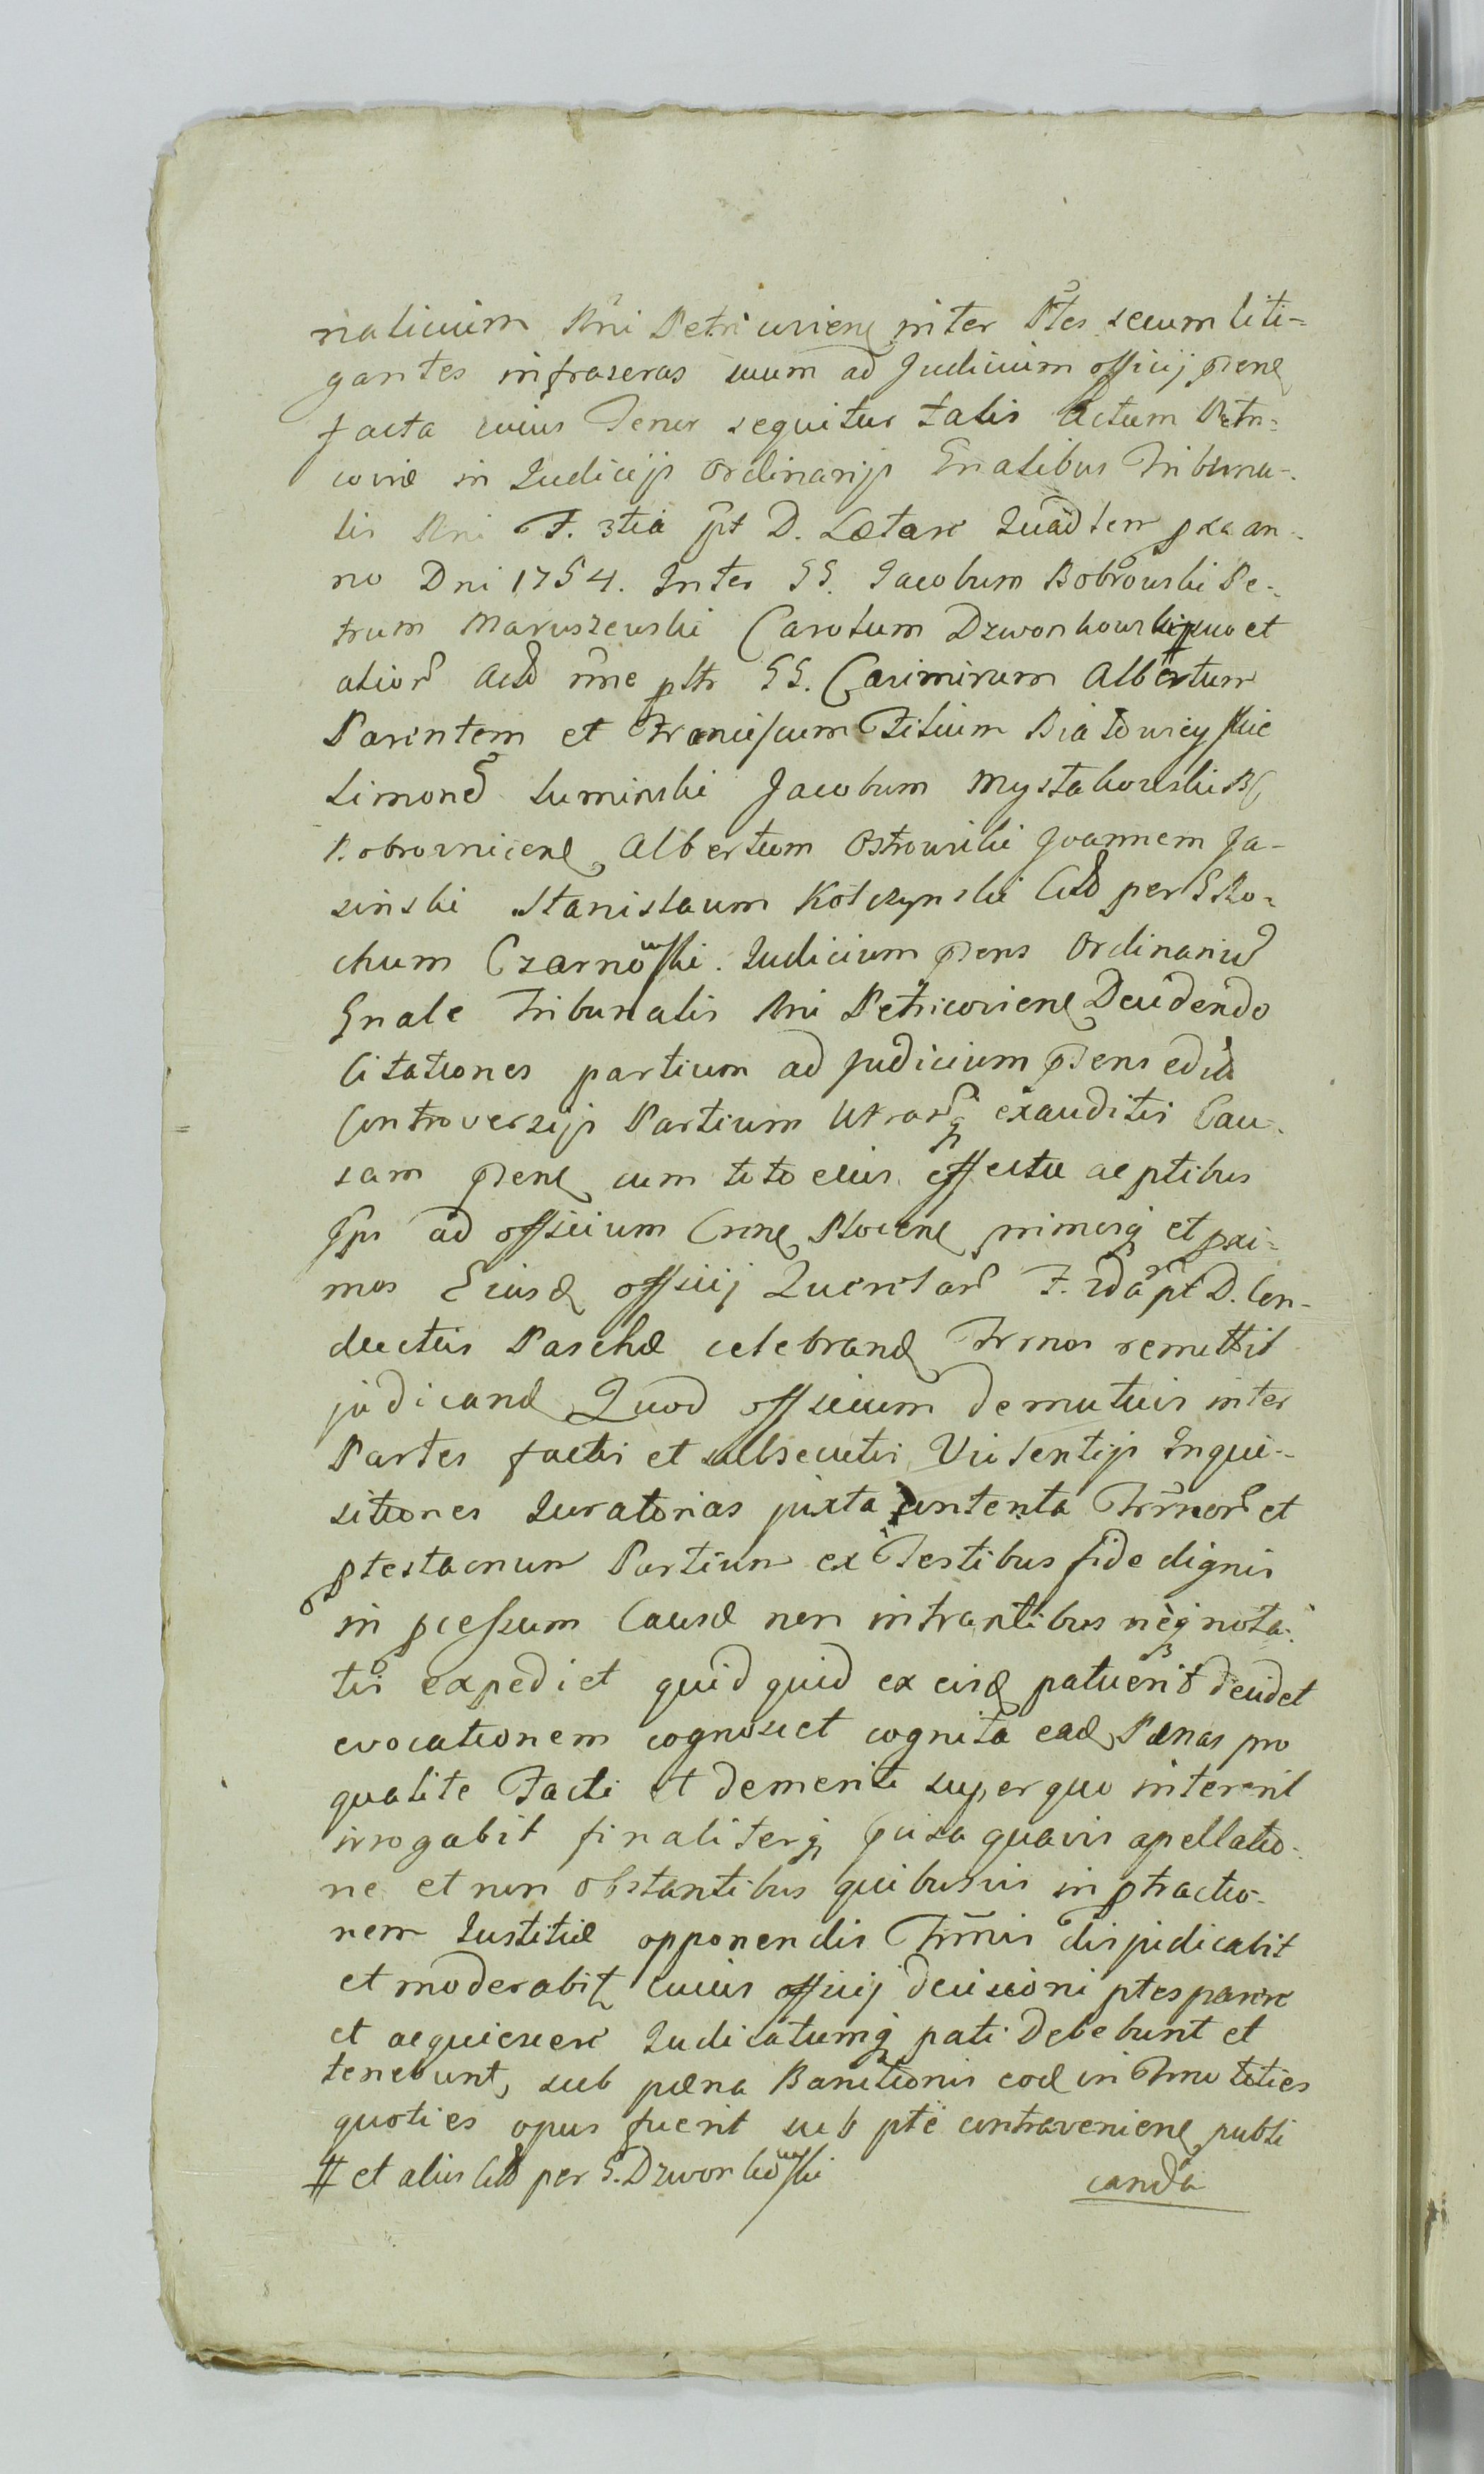 nalicium Rni Petricoviens inter Ptes secum liti=
gantes infraseras suum ad Judicium officij pdens
facta cuius Tenor sequitur talis Actum Petri=
coviæ in Judicijs Ordinarijs Gnalibus Tribuna-
lis Rni F. 3tia pt D. Lætare Quadlem pxa an-
no Dni 1754. Inter GG. Jacobum Bobrowski Pe-
trum Maruszewski Carolum Dzwonkowski # quo et
alior Acto nme pltr GG. Casimirum Albertum
Parentem et Franciscum Filium Białowieyskie
Simone Suminski Jacobum Mystkowski
Dobrovnicens Albertum Ostrowski Joannem Ja-
sinski Stanislaum Kołczynski Citto per G Ro-
chum Czarnowski. Judicium pdens Ordinariu
Gnale Tribunalis Rni Petricoviens Decidendo
Citationes partium ad Judicium pdens edita
Controversijs Partium Utrarq exauditis Cau-
sam pdens cum toto eius effectu ac ptibus
Ips ad officium Crense Plocens primosq et pxi-
mos Eiusd officij Querelar F. 2da pt D. Con-
ductus Paschæ celebrand Trmos remittit
judicand Quod officium de mutuis inter
Partes factis et subsecutis Violentijs Inqui-
sitiones Juratorias juxta contenta Trmor et
ptestaonum Partium ex Testibus fide dignis
in pcessum Causæ non intrantibus neq nota-
tis expediet quid quid ex eisd patuerit decidet
evocationem cognoscet cognita ead Pænas pro
qualite Facti et demeriti super quo intererit
irrogabit finaliterq pcisa quavis apellatio-
ne et non obstantibus quibusvis in ptractio-
nem Justitiæ opponendis Trmis disjudicabit
et moderabit cuius officij decisioni ptes parere
et acquiescere Judicatumq pati Debebunt et
tenebunt, sub pæna Banitionis eod in Trmo toties
quoties opus fuerit sub pte contraveniens publi
# et alius Citto per G. Dzwonkowski
canda